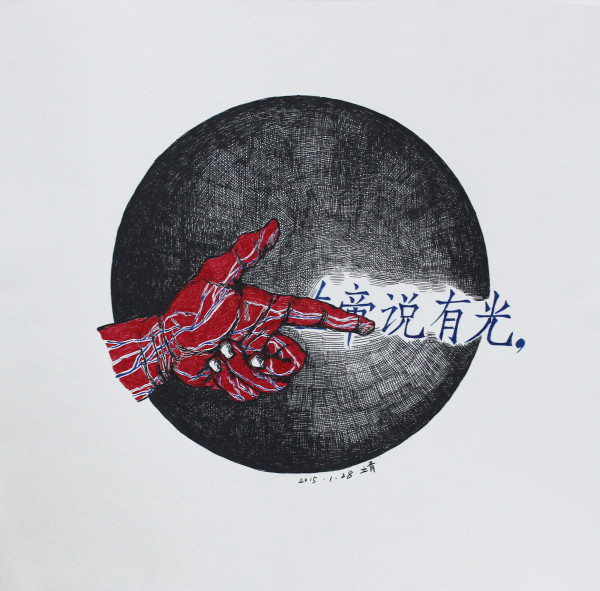 上帝说有光，
2015.1.28 靖